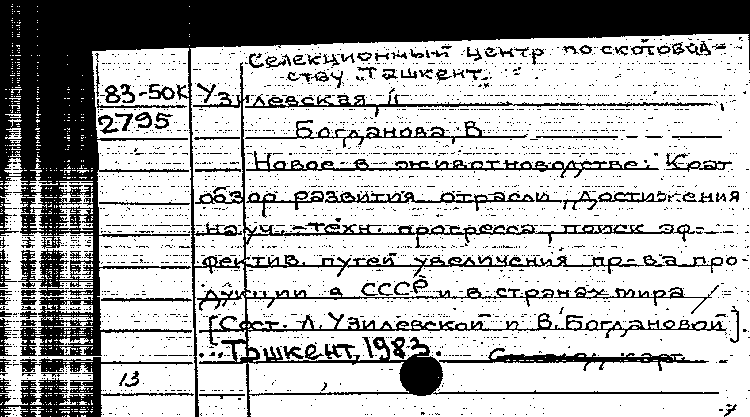 Селекционный центр по скотовод-
ству. Ташкент.
83-50К Узилевская, Л
2795
Богданова, В
Новое в животноводстве: Крат
обзор развития отрасли, достижения
науч.-техн. прогресса, поиск эф-
фектив. путей увеличения пр-ва про-
дукции в СССР и в странах мира /
[Сост. Л. Узилевской и В. Богдановой].
...Ташкент, 1983.
13